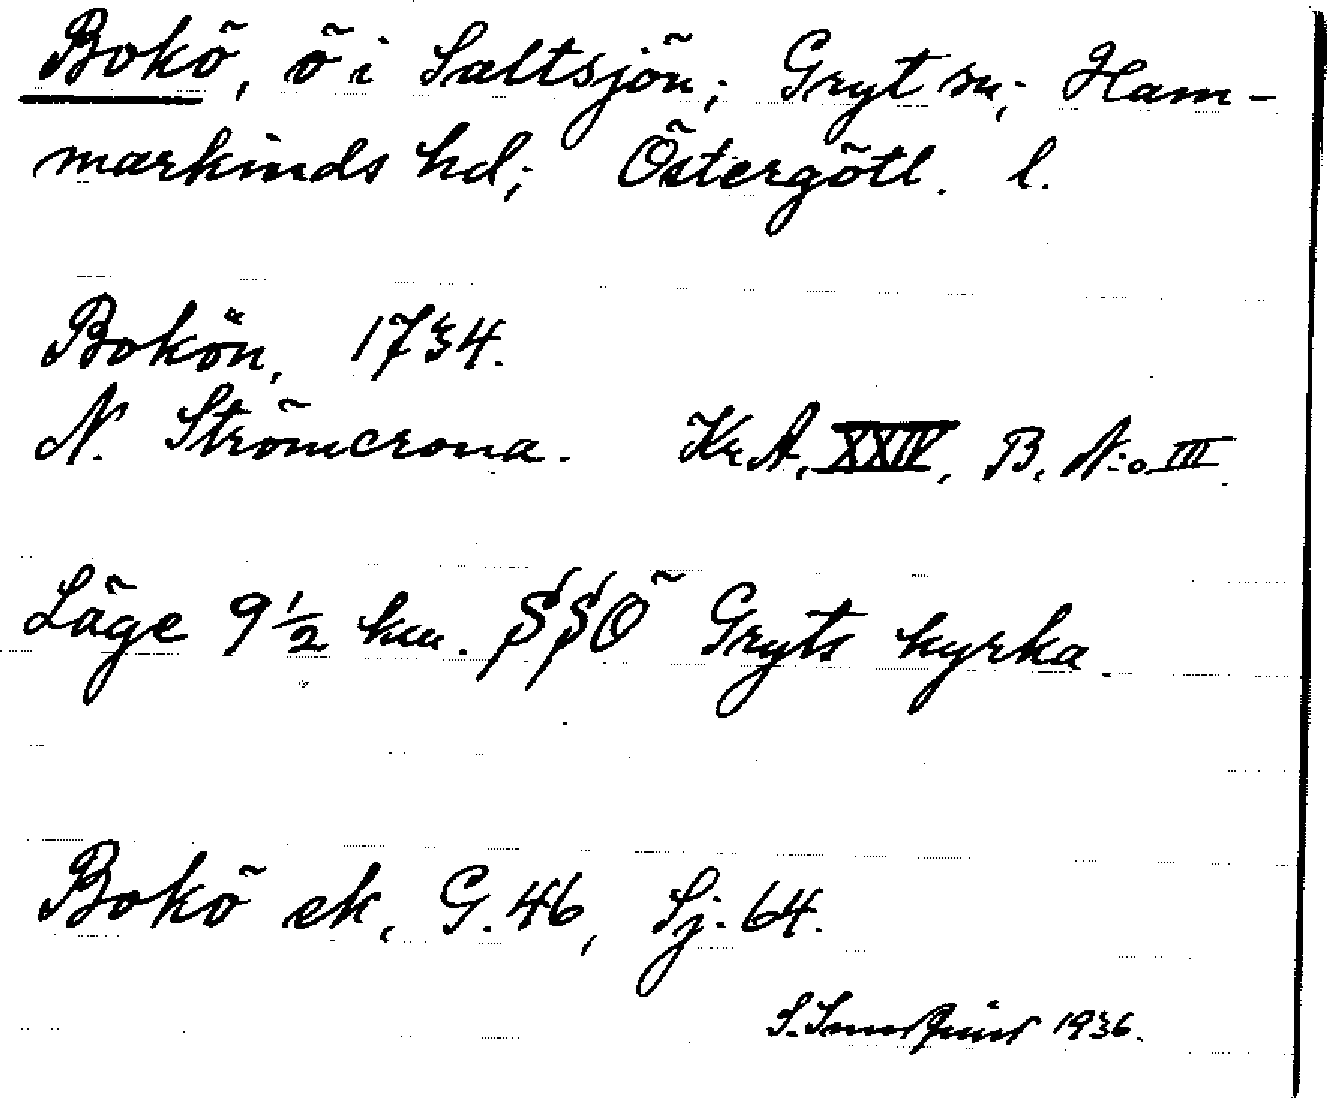 Bokö, ö i Saltsjön; Gryt sn; Ham-
markinds hd; Östergötl. l.
Bokön, 1734.
N. Strömcrona. Kr.A. XXIV, B. N:o III.
Läge 9 1/2 km. SSÖ Gryts kyrka
Bokö ek, G. 46, Sj. 64.
S. 1936.